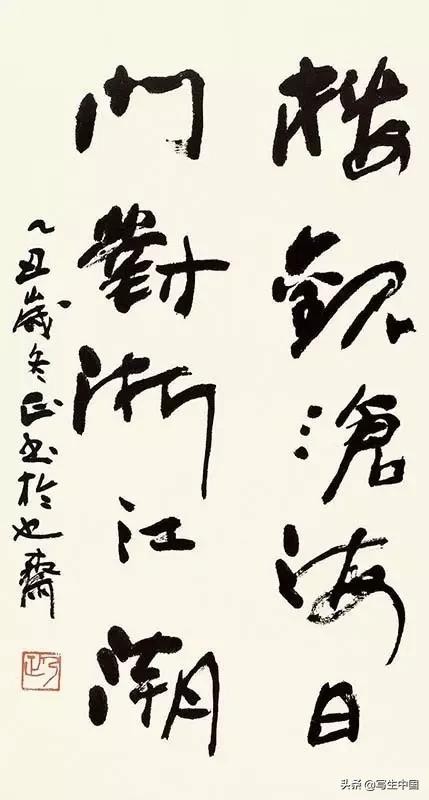 楼觀滄海日
門對浙江潮
乙丑歲冬正书於也齋
头条@写生中国